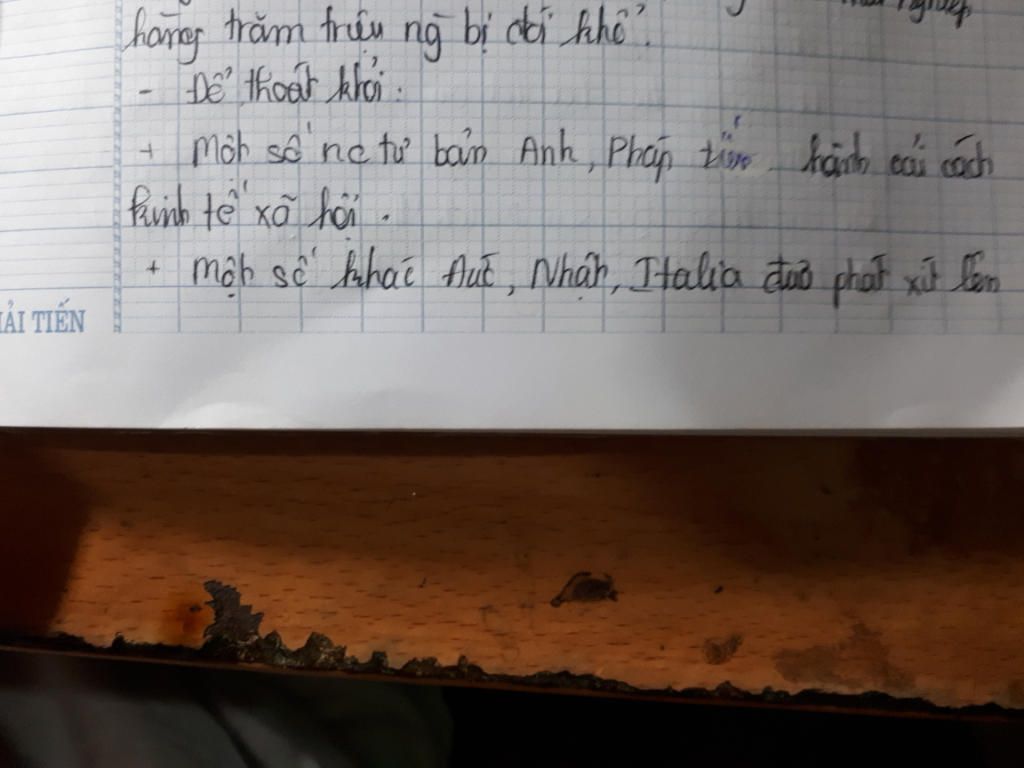 nghiệp
hàng trăm triệu ng bị đói khổ.
- Để thoát khỏi:
+ Một số nc tư bản Anh, Pháp tiến hành cải cách
kinh tế xã hội.
+ một số khác Đức, Nhật, Italia đưa phát xít lên
ẢI TIẾN